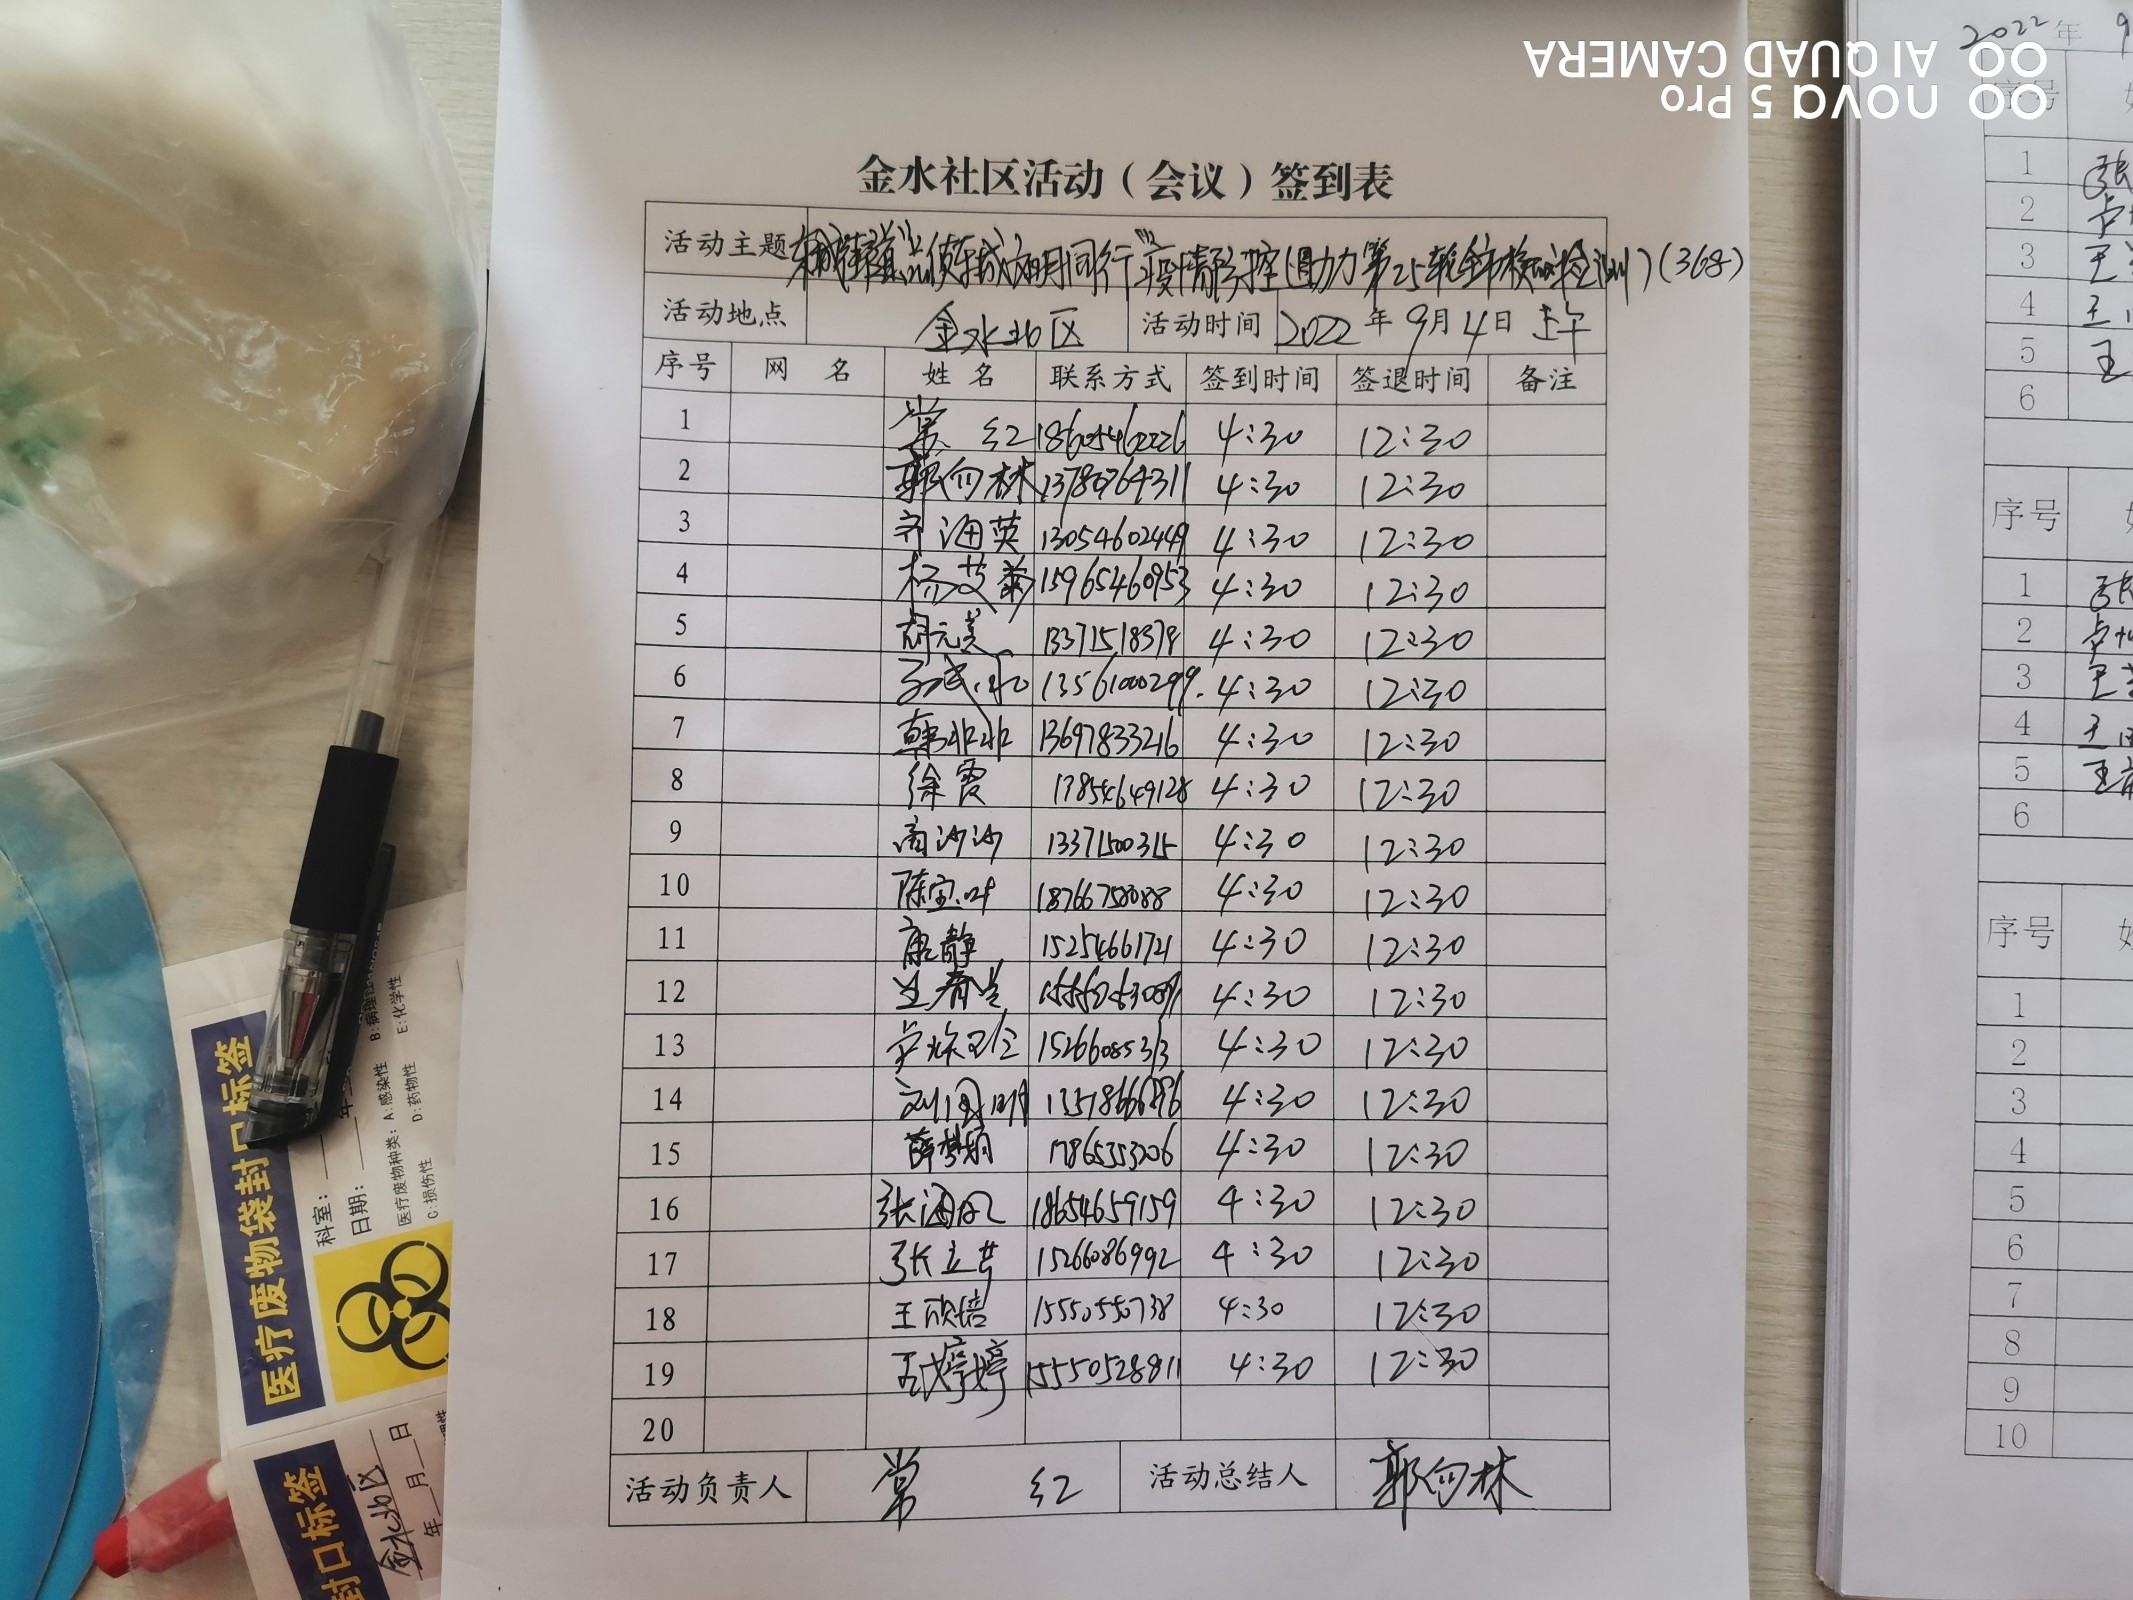 金水社区活动（会议）签到表
活动主题 疫情防控（助力第25轮全市核酸检测）（368）
活动地点 金水社区 活动时间 2022年9月4日 上午
序号 网 名 姓 名 联系方式 签到时间 签退时间 备注
1 常 红 18605460226 4:30 12:30
2 郭向林 4:30 12:30
3 齐海英 13054602449 4:30 12:30
4 杨艾菊 15965460953 4:30 12:30
5 胡元美 13371518378 4:30 12:30
6 13561000299 4:30 12:30
7 韩非非 13697833216 4:30 12:30
8 徐霞 17854649128 4:30 12:30
9 商沙沙 13371500315 4:30 12:30
10 陈宝叶 18766758088 4:30 12:30
11 康静 15254661721 4:30 12:30
12 4:30 12:30
13 15266085313 4:30 12:30
14 刘国明 4:30 12:30
15 17865353206 4:30 12:30
16 张海风 18654659159 4:30 12:30
17 张立芹 15266086992 4:30 12:30
18 王欣培 15550550738 4:30 12:30
19 婷婷 15550528811 4:30 12:30
20
活动负责人 常 红 活动总结人 郭向林
nova 5 Pro
AI QUAD CAMERA
2022年 9
序号
1 张
2 卢
3 王
4 王
5 王
6
序号
1 张
2 卢
3 王
4 王
5 王
6
序号
1
2
3
4
5
6
7
8
9
10
医疗废物袋封口标签
科室：
日期： 年
医疗废物种类：A:感染性 B:病理性
C:损伤性 D:药物性 E:化学性
封口标签
金水社区
年 月 日